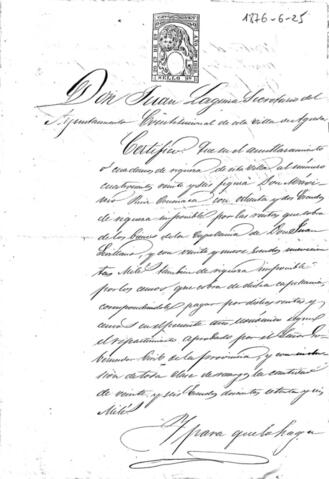 1876-6-25
Don Juan Laguna Secretario del
Ayuntamiento Constitucional de esta villa de Agreda
Certifico: que en el amillaramiento
o cuaderno de riqueza de esta villa al número
cuatrocientos veinte y seis figura Don
Ruiz con ochenta y dos Escudos
de riqueza imponible por las rentas que cobra
de los bienes de la Capellanía de Don Juan
y con veinte y nueve Escudos
Milé. tambien de riqueza imponible
por los censos que cobra de dicha capellanía,
correspondiendole pagar por dichas rentas y
censos en el presente año económico segun
el repartimiento aprobado por el Señor Go-
bernador Civil de la provincia, y con inclu-
sion de toda clase de recargos la cantidad
de veinte y seis Escudos doscientas y seis
Milé.
Y para que lo haga